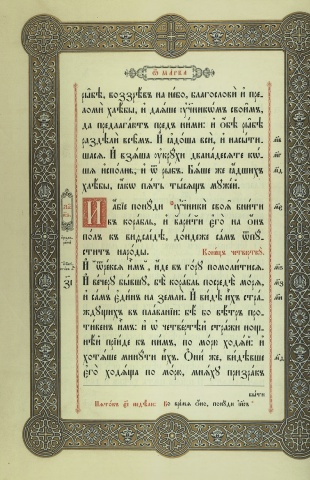 Ѿ МАРКА
рыбѣ, воззрѣвъ на небо, благослови и пре-
ломи хлѣбы, и даяше ученикѡмъ своимъ,
да предлагаютъ пред̾ ними: и ѻбѣ рыбѣ
раздѣли всѣмъ. И ядоша вси, и насыти-
шася. И взяша укрухи дванадесяте ко-
ша исполнь, и ѿ рыбъ. Бяше же ядшихъ
хлѣбы, якѡ пять тысящъ мужей.
И абіе понуди ученики своя внити
въ корабль, и варити его на онъ
полъ къ виѳсаидѣ, дондеже самъ ѿпу-
ститъ народы. Конецъ четвертку.
И ѿрекся имъ, иде въ гору помолитися.
И вечеру бывшу, бѣ корабль посредѣ моря,
и самъ единъ на земли. И видѣ ихъ страж-
дущихъ въ плаваніи: бѣ бо вѣтръ про-
тивенъ имъ: и ѡ четвертѣй стражи нощ-
нѣй пріиде къ нимъ, по морю ходяй: и
хотяше минути ихъ. Они же, видѣвше
его ходяща по морю, мняху призракъ
быти
Во время оно, понуди іисъ